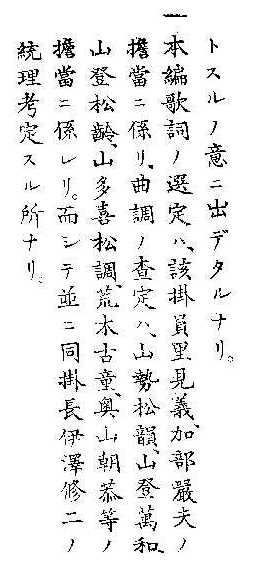 トスルノ意ニ出デタルナリ。
一本編歌詞ノ選定ハ、該掛員里見義、加部嚴夫ノ
擔當ニ係リ、曲調ノ査定ハ、山勢松韻、山登萬和、
山登松齡、山多喜松調、荒木古童、奧山朝恭等ノ
擔當ニ係レリ。而シテ並ニ同掛長伊澤修二ノ
統理考定スル所ナリ。